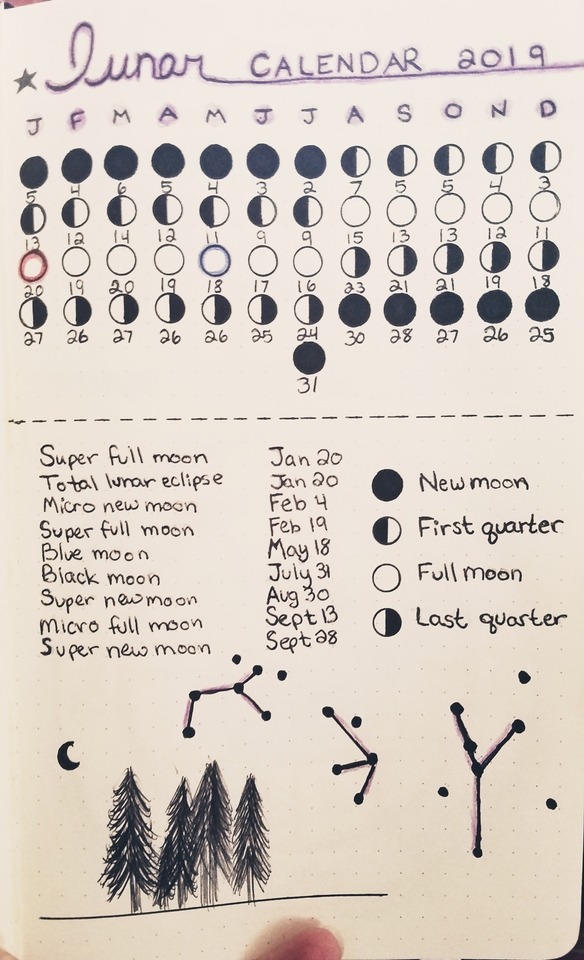 lunar CALENDAR 2019
J F M A M J J A S O N D
5 4 6 5 4 3 2 7 5 5 4 3
13 12 14 12 11 9 9 15 13 13 12 11
20 19 20 19 18 17 16 23 21 21 19 18
27 26 27 26 26 25 24 30 28 27 26 25
31
Super full moon Jan 20
Total lunar eclipse Jan 20
Micro new moon Feb 4
Super full moon Feb 19
Blue moon May 18
Black moon July 31
Super new moon Aug 30
Micro full moon Sept 13
Super new moon Sept 28
New moon
First quarter
Full moon
Last quarter